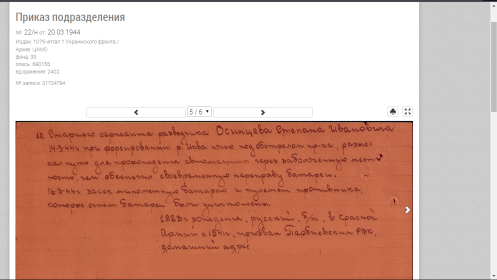 Приказ подразделения
№: 22/н от: 20.03.1944
Издан: 1076 иптап 1 Украинского фронта /
Архив: ЦАМО
фонд: 33
опись: 690155
ед.хранения: 2402
№ записи: 31724794
5 / 6
Старшего сержанта разведчика Осинцева Степана Ивановича
14.3.44г при форсировании р. Иква ночью под обстрелом пр-ка,
путь для прохождения автомашин через заболоченную мест-
ность чем обеспечил своевременную переправу батареи.
16.3.44г засек минометную батарею и пулемет противника,
которые огнем батареи были уничтожены.
рождения, русский, б/п, в Красной
Армии с 1941г, призван РВК,
домашний адрес